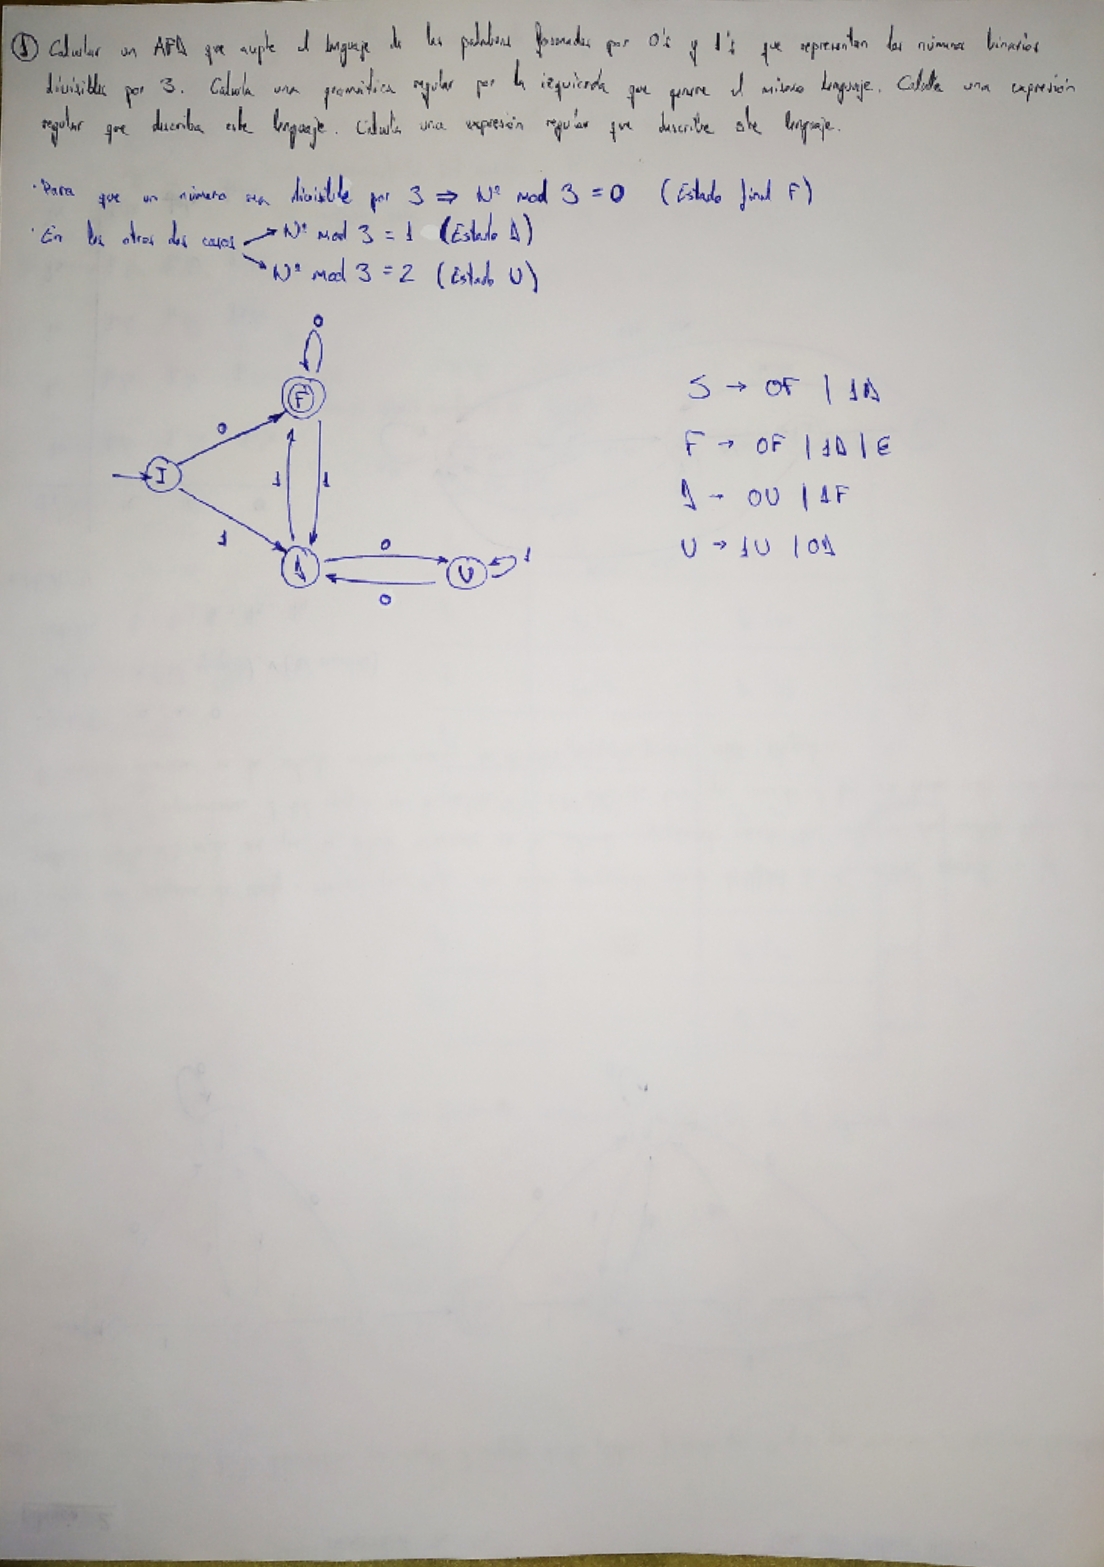 ① Calcular un AFD que acepte el lenguaje de las palabras formadas por 0's y 1's que representan los números binarios
divisibles por 3. Calcula una gramática regular por la izquierda que genere el mismo lenguaje. Calcula una expresión
regular que describa este lenguaje. Calcula una expresión regular que describe este lenguaje.
· Para que un número sea divisible por 3 ⇒ Nº mod 3 = 0 (Estado final F)
· En los otros dos casos → Nº mod 3 = 1 (Estado D)
→ Nº mod 3 = 2 (Estado U)
0
F
S → 0F | 1D
0
I
F → 0F | 1D | ε
1
1
D → 0U | 1F
1
0
1
D
U
U → 1U | 0D
0